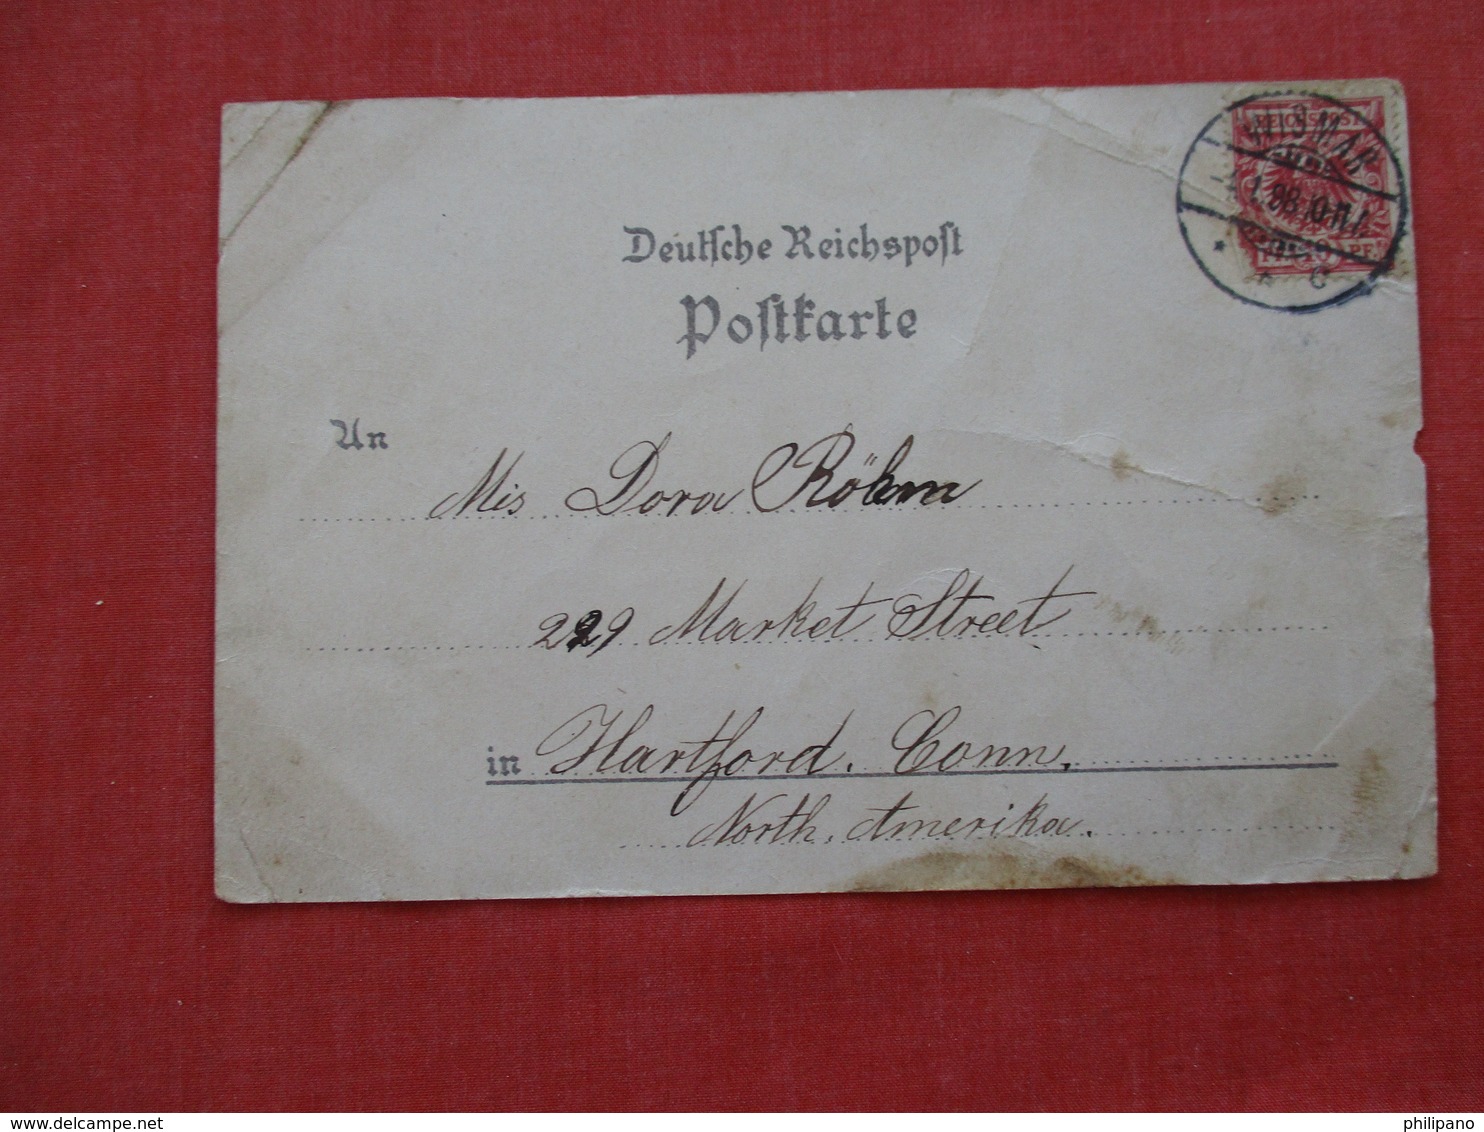 WISMAR
REICHSPOST
1.98.10-11V.
* * c
10 PF.
Deutsche Reichspost
Postkarte
An
Mis Dora Röhm
229 Market Street
in Hartford. Conn.
North. Amerika.
http://www.delcampe.net
philipano